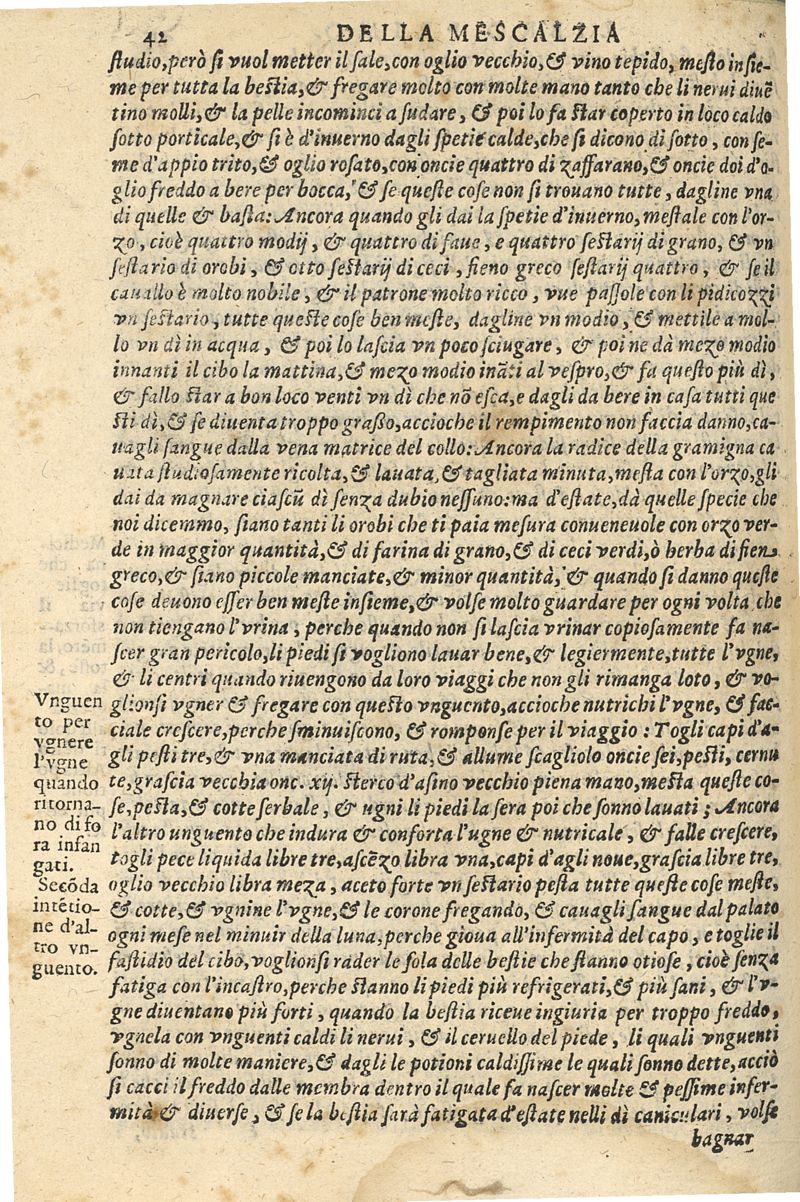 42 DELLA MESCALZIA
studio, però si vuol metter il sale, con oglio vecchio, & vino tepido, mesto insie-
me per tutta la bestia, & fregare molto con molte mano tanto che li nerui diuē
tino molli, & la pelle incominci a sudare, & poi lo fa star coperto in loco caldo
sotto porticale, & si è d'inuerno dagli spetie calde, che si dicono di sotto, con se-
me d'appio trito, & oglio rosato, con oncie quattro di zaffarano, & oncie doi d'o-
glio freddo a bere per bocca, & se queste cose non si trouano tutte, dagline vna
di quelle & basta: Ancora quando gli dai la spetie d'inuerno, mestale con l'or-
zo, cioè quattro modij, & quattro di faue, e quattro sestarij di grano, & vn
sestario di orobi, & otto sestarij di ceci, fieno greco sestarij quattro, & se il
cauallo è molto nobile, & il patrone molto ricco, vue passole con li pidicozzi
vn sestario, tutte queste cose ben meste, dagline vn modio, & mettile a mol-
lo vn dì in acqua, & poi lo lascia vn poco sciugare, & poi ne dà mezo modio
innanti il cibo la mattina, & mezo modio ināti al vespro, & fa questo più dì,
& fallo star a bon loco venti vn dì che nō esca, e dagli da bere in casa tutti que
sti dì, & se diuenta troppo grasso, accioche il rempimento non faccia danno, ca-
uagli sangue dalla vena matrice del collo: Ancora la radice della gramigna ca
uata studiosamente ricolta, & lauata, & tagliata minuta, mesta con l'orzo, gli
dai da magnare ciascū dì senza dubio nessuno: ma d'estate, dà quelle specie che
noi dicemmo, siano tanti li orobi che ti paia mesura conueneuole con orzo ver-
de in maggior quantità, & di farina di grano, & di ceci verdi, ò herba di fien
greco, & siano piccole manciate, & minor quantità, & quando si danno queste
cose deuono esser ben meste insieme, & volse molto guardare per ogni volta che
non tiengano l'vrina, perche quando non si lascia vrinar copiosamente fa na-
scer gran pericolo, li piedi si vogliono lauar bene, & legiermente, tutte l'vgne,
& li centri quando riuengono da loro viaggi che non gli rimanga loto, & vo-
glionsi vgner & fregare con questo vnguento, accioche nutrichi l'vgne, & fac-
ciale crescere, perche sminuiscono, & romponse per il viaggio: Togli capi d'a-
gli pesti tre, & vna manciata di ruta, & allume scagliolo oncie sei, pesti, cernu
te, grascia vecchia onc. xij. sterco d'asino vecchio piena mano, mesta queste co-
se, pesta, & cotte serbale, & ugni li piedi la sera poi che sonno lauati; Ancora
l'altro unguento che indura & conforta l'ugne & nutricale, & falle crescere,
togli pece liquida libre tre, ascēzo libra vna, capi d'agli noue, grascia libre tre,
oglio vecchio libra meza, aceto forte vn sestario pesta tutte queste cose meste,
& cotte, & vgnine l'vgne, & le corone fregando, & cauagli sangue dal palato
ogni mese nel minuir della luna, perche gioua all'infermità del capo, e toglie il
fastidio del cibo, voglionsi rader le sola delle bestie che stanno otiose, cioè senza
fatiga con l'incastro, perche stanno li piedi più refrigerati, & più sani, & l'v-
gne diuentano più forti, quando la bestia riceue ingiuria per troppo freddo,
vgnela con vnguenti caldi li nerui, & il ceruello del piede, li quali vnguenti
sonno di molte maniere, & dagli le potioni caldissime le quali sonno dette, acciò
si cacci il freddo dalle membra dentro il quale fa nascer molte & pessime infer-
mità & diuerse, & se la bestia sarà fatigata d'estate nelli dì caniculari, volse
bagnar
Vnguen
to per
vgnere
l'vgne
quando
ritorna-
no di fo
ra infan
gati.
Secōda
intētio-
ne d'al-
tro vn-
guento.